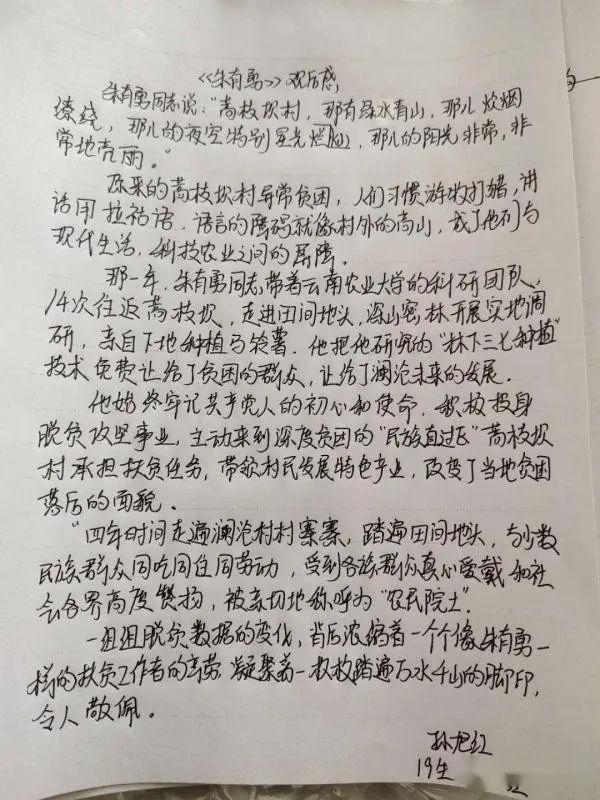 《朱有勇》观后感
朱有勇同志说:“蒿枝坎村,那有绿水青山,那儿炊烟
缭绕,那儿的夜空特别星光烂灿,那儿的阳光非常,非
常地亮丽。”
原来的蒿枝坎村异常贫困,人们习惯游牧打猎,讲
话用拉祜语,语言的障碍就像村外的高山,成了他们与
现代生活,科技农业之间的屏障。
那一年,朱有勇同志带着云南农业大学的科研团队,
14次往返蒿枝坎,走进田间地头,深山密林开展实地调
研,亲自下地种植马铃薯.他把他研究的“林下三七种植”
技术免费让给了贫困的群众,让给了澜沧未来的发展.
他始终牢记共产党人的初心和使命.积极投身
脱贫攻坚事业,主动来到深度贫困的“民族直过区”蒿枝坎
村承担扶贫任务,带领村民发展特色产业,改变了当地贫困
落后的面貌。
“四年时间走遍澜沧村村寨寨,踏遍田间地头,与少数
民族群众同吃同住同劳动,受到各族群众真心爱戴和社
会各界高度赞扬,被亲切地称呼为“农民院士”.
一组组脱贫数据的变化,背后浓缩着一个个像朱有勇一
样的扶贫工作者的辛劳.凝聚着一枚枚踏遍万水千山的脚印,
令人敬佩。
孙旭红
19生